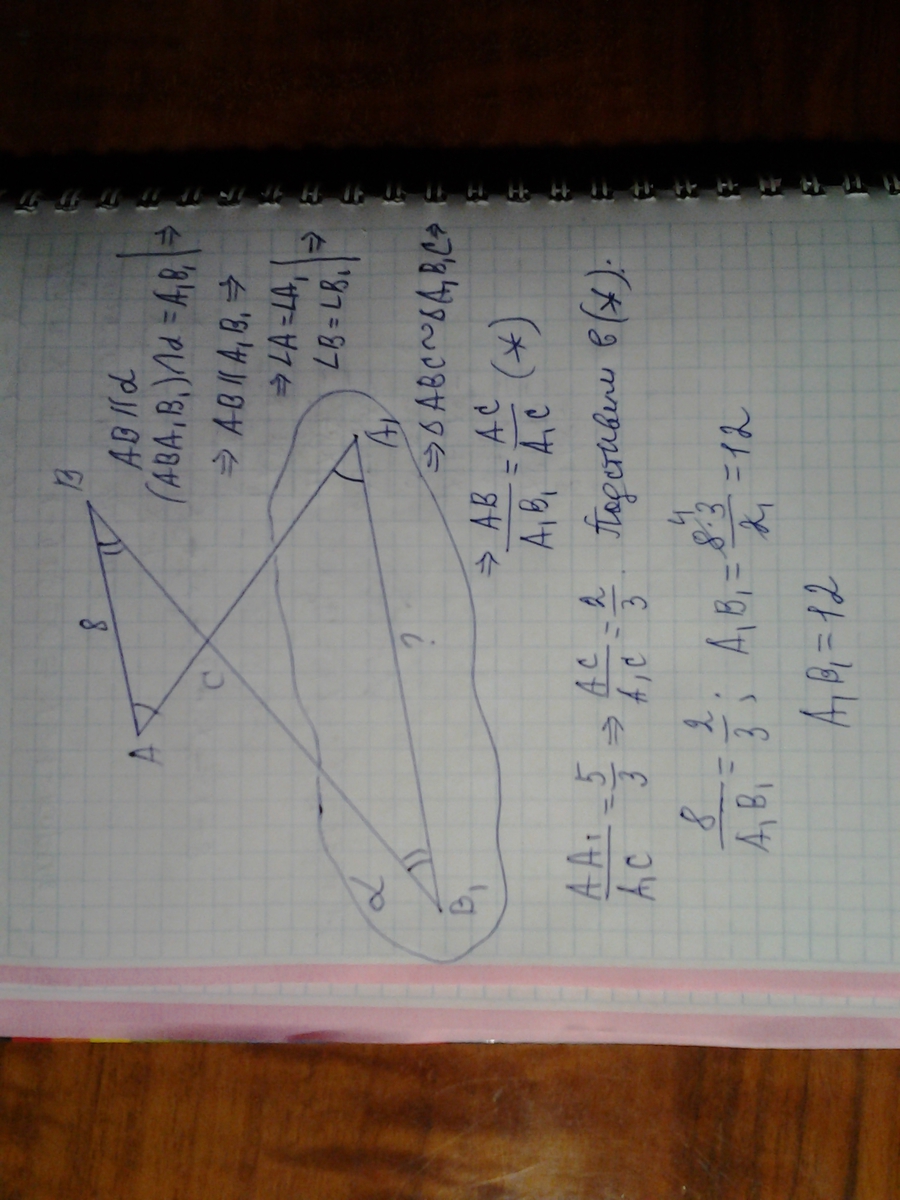 B
8
A
C
A₁
?
α
B₁
AB || α
(ABA₁B₁) ∩ α = A₁B₁ | ⇒
⇒ AB || A₁B₁ ⇒
⇒ ∠A = ∠A₁ | ⇒
∠B = ∠B₁
⇒ ΔABC ~ ΔA₁B₁C ⇒
⇒ AB/A₁B₁ = AC/A₁C (*)
AA₁/A₁C = 5/3 ⇒ AC/A₁C = 2/3. Подставим в (*).
8/A₁B₁ = 2/3; A₁B₁ = 8⁴·3/2₁ = 12
A₁B₁ = 12